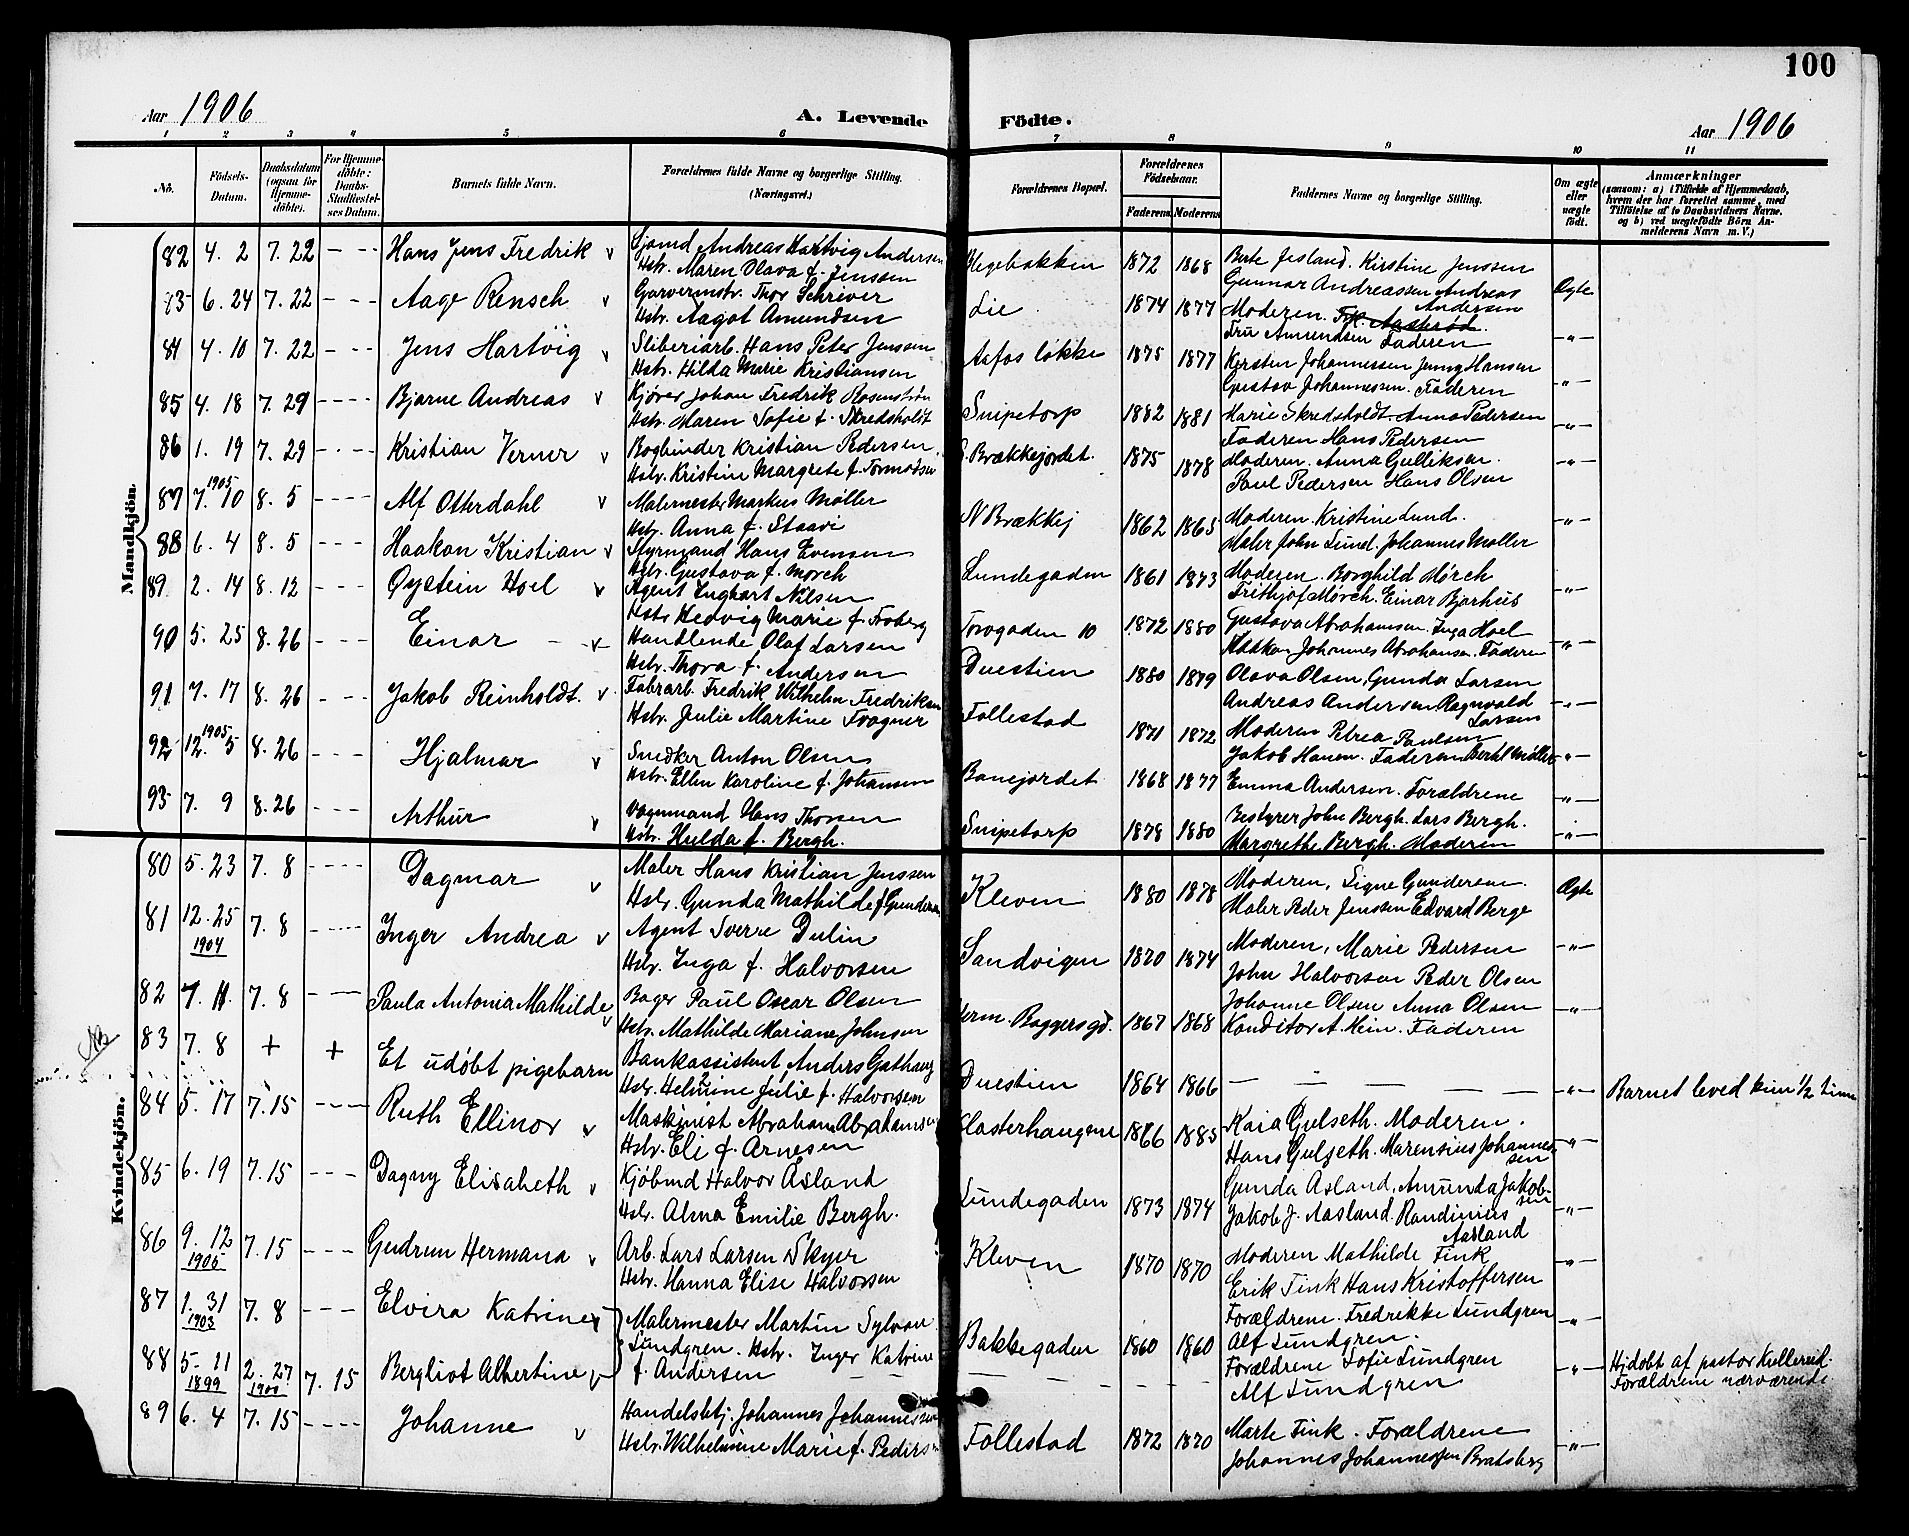 100
Aar 1906
A. Levende
Födte.
Aar 1906
1 2 3 4 5 6 7 8 9 10 11
No.
Födsels-Datum.
Daabsdatum (ogsaa for Hjemme-döbte).
For Hjemme-döbte: Daabs-Stadfæstel-ses Datum.
Barnets fulde Navn.
Forældrenes fulde Navne og borgerlige Stilling.
(Næringsvei.)
Forældrenes Bopæl.
Forældrenes Födselsaar.
Faderens Moderens
Faddernes Navne og borgerlige Stilling.
Om ægte eller uægte födt.
Anmærkninger
(saasom: a) i Tilfælde af Hjemmedaab,
hvem der har forrettet samme, med
Tilföielse af to Daabsvidners Navne,
og b) ved uægtefödte Börn An-
melderens Navn m. V.)
Mandkjön.
82 4. 2 7. 22 - - - Hans Jens Fredrik v Sjømd Andreas Hartvig Andersen
Hstr. Maren Olava f. Jenssen
Hegebakken 1872 1868 Berte Jesland. Kirstine Jenssen
Gunnar Andreassen Andreas Andersen Ægte
83 6. 24 7. 22 - - - Aage Rensch v Garvermstr. Thor Schriver
Hstr. Aagot Amundsen
Lie 1874 1877 Moderen.
Fru Amundsen Faderen -"-
84 4. 10 7. 22 - - - Jens Hartvig v Sliberiarb. Hans Peter Jenssen
Hstr. Hilda Marie Kristiansen
Aafos løkke 1875 1877 Kirsten Johannessen Jenny Hansen
Gustav Johannessen. Faderen -"-
85 4. 18 7. 29 - - - Bjarne Andreas v Kjører Johan Fredrik Rosenstrøm
Hstr. Maren Sofie f. Skredsholdt
Snipetorp 1882 1881 Marie Skredsholdt. Anna Pedersen
Faderen Hans Pedersen -"-
86 1. 19 7. 29 - - - Kristian Verner v Bogbinder Kristian Pedersen
Hstr. Kristine Margrete f. Tormodsen
S. Brækkejordet. 1875 1878 Moderen. Anna Gulliksen.
Paul Pedersen Hans Olsen -"-
87 7. 10 1905 8. 5 - - - Alf Otterdahl v Malermester Markus Møller
Hstr. Anna f. Staavi
N Brækkej 1862 1865 Moderen. Kristine Lund.
Maler John Lund. Johannes Møller -"-
88 6. 4 8. 5 - - - Haakon Kristian v Styrmand Hans Evensen
Hstr. Gustava f. Mørch
Lundegaden 1861 1873 Moderen. Borghild Mørch
Frithjof Mørch. Einar Bjørhus -"-
89 2. 14 8. 12 - - - Øystein Hoel v Agent Ingvart Nilsen
Hstr. Hedvig Marie f. Froberg
Torvgaden 10 1872 1880 Gustava Abrahamsen. Inga Hoel
Haakon Johannes Abrahamsen. Faderen -"-
90 5. 25 8. 26 - - - Einar v Handlende Olaf Larsen
Hstr. Thora f. Andersen
Duestien 1880 1879 Olava Olsen, Gunda Larsen
Andreas Andersen Ragnvald Larsen -"-
91 7. 17 8. 26 - - - Jakob Reinholdt. v Fabrarb. Fredrik Wilhelm Fredriksen
Hstr. Julie Martine Frogner
Follestad 1871 1872 Moderen Petrea Paulsen
Jakob Hansen. Faderen Bertel Møller -"-
92 12. 5 1905 8. 26 - - - Hjalmar v Snedker Anton Olsen
Hstr. Ellen Karoline f. Johansen
Banejordet 1868 1877 Emma Andersen. Forældrene -"-
93 7. 9 8. 26 - - - Arthur v Vognmand Hans Thorsen
Hstr. Hulda f. Bergh.
Snipetorp 1878 1880 Bestyrer John Bergh. Lars Bergh.
Margrethe Bergh. Moderen -"-
Kvindekjön.
80 5. 23 7. 8 - - - Dagmar v Maler Hans Kristian Jenssen
Hstr. Gunda Mathilde f. Gundersen
Kleven 1880 1878 Moderen, Signe Gundersen.
Maler Peder Jenssen Edvard Berge Ægte
81 12. 25 1904 7. 8 - - - Inger Andrea v Agent Sverre Dulin
Hstr. Inga f. Halvorsen
Sandvigen 1870 1874 Moderen, Marie Pedersen
John Halvorsen Peder Olsen -"-
82 7. 11. 7. 8 - - Paula Antonia Mathilde v Bager Paul Oscar Olsen
Hstr. Mathilde Mariane Johnsen
Herm. Baggersgd. 1867 1868 Johanne Olsen Anna Olsen
Konditor A. Hein. Faderen -"-
83 7. 8 + + Et udøbt pigebarn Bankassistent Anders Gathaug
Hstr. Helmine Julie f. Halvorsen
Duestien 1864 1866 - - - - -"- Barnet leved kun 1/2 time
84 5. 17 7. 15 - - - Ruth Ellinor v Maskinist Abraham Abrahamsen
Hstr. Eli f. Arnesen
Klosterhaugene 1866 1885 Kaia Gulseth. Moderen.
Hans Gulseth. Marensius Johannessen -"-
85 6. 19 7. 15 - - - Dagny Elisabeth v Kjøbmd Halvor Asland
Hstr. Alma Emilie Bergh.
Lundegaden 1873 1874 Gunda Asland, Amunda Jakobsen
Jakob J. Aasland. Randinius Aasland -"-
86 9. 12 1905 7. 15 - - - Gudrun Hermana v Arb. Lars Larsen Skyer
Hstr. Hanna Elise Halvorsen
Kleven 1870 1870 Moderen Mathilde Fink
Erik Fink Hans Kristoffersen -"-
87 1. 31 1903 7. 8 - - - Elvira Katrine v Malermester Martin Sylvan
Lundgren. Hstr. Inger Katrine
f. Andersen
Bakkegaden 1860 1860 Forældrene. Fredrikke Lundgren
Alf Lundgren. -"-
88 5. 11 1899 2. 27 1900 7. 15 Bergliot Albertine v - - - - - Forældrene Sofie Lundgren
Alf Lundgren -"- Hjdøbt af pastor Kullerud.
Forældrene nærværende
89 6. 4 7. 15 - - - Johanne v Handelsbtj. Johannes Johannessen
Hstr. Wilhelmine Marie f. Peders
Follestad 1872 1870 Marte Fink. Forældrene
Johannes Johannessen Bratsberg -"-